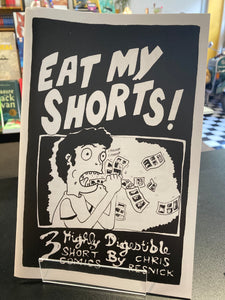 EAT MY
SHORTS!
3 Highly Digestible
SHORT BY CHRIS
COMICS RESNICK